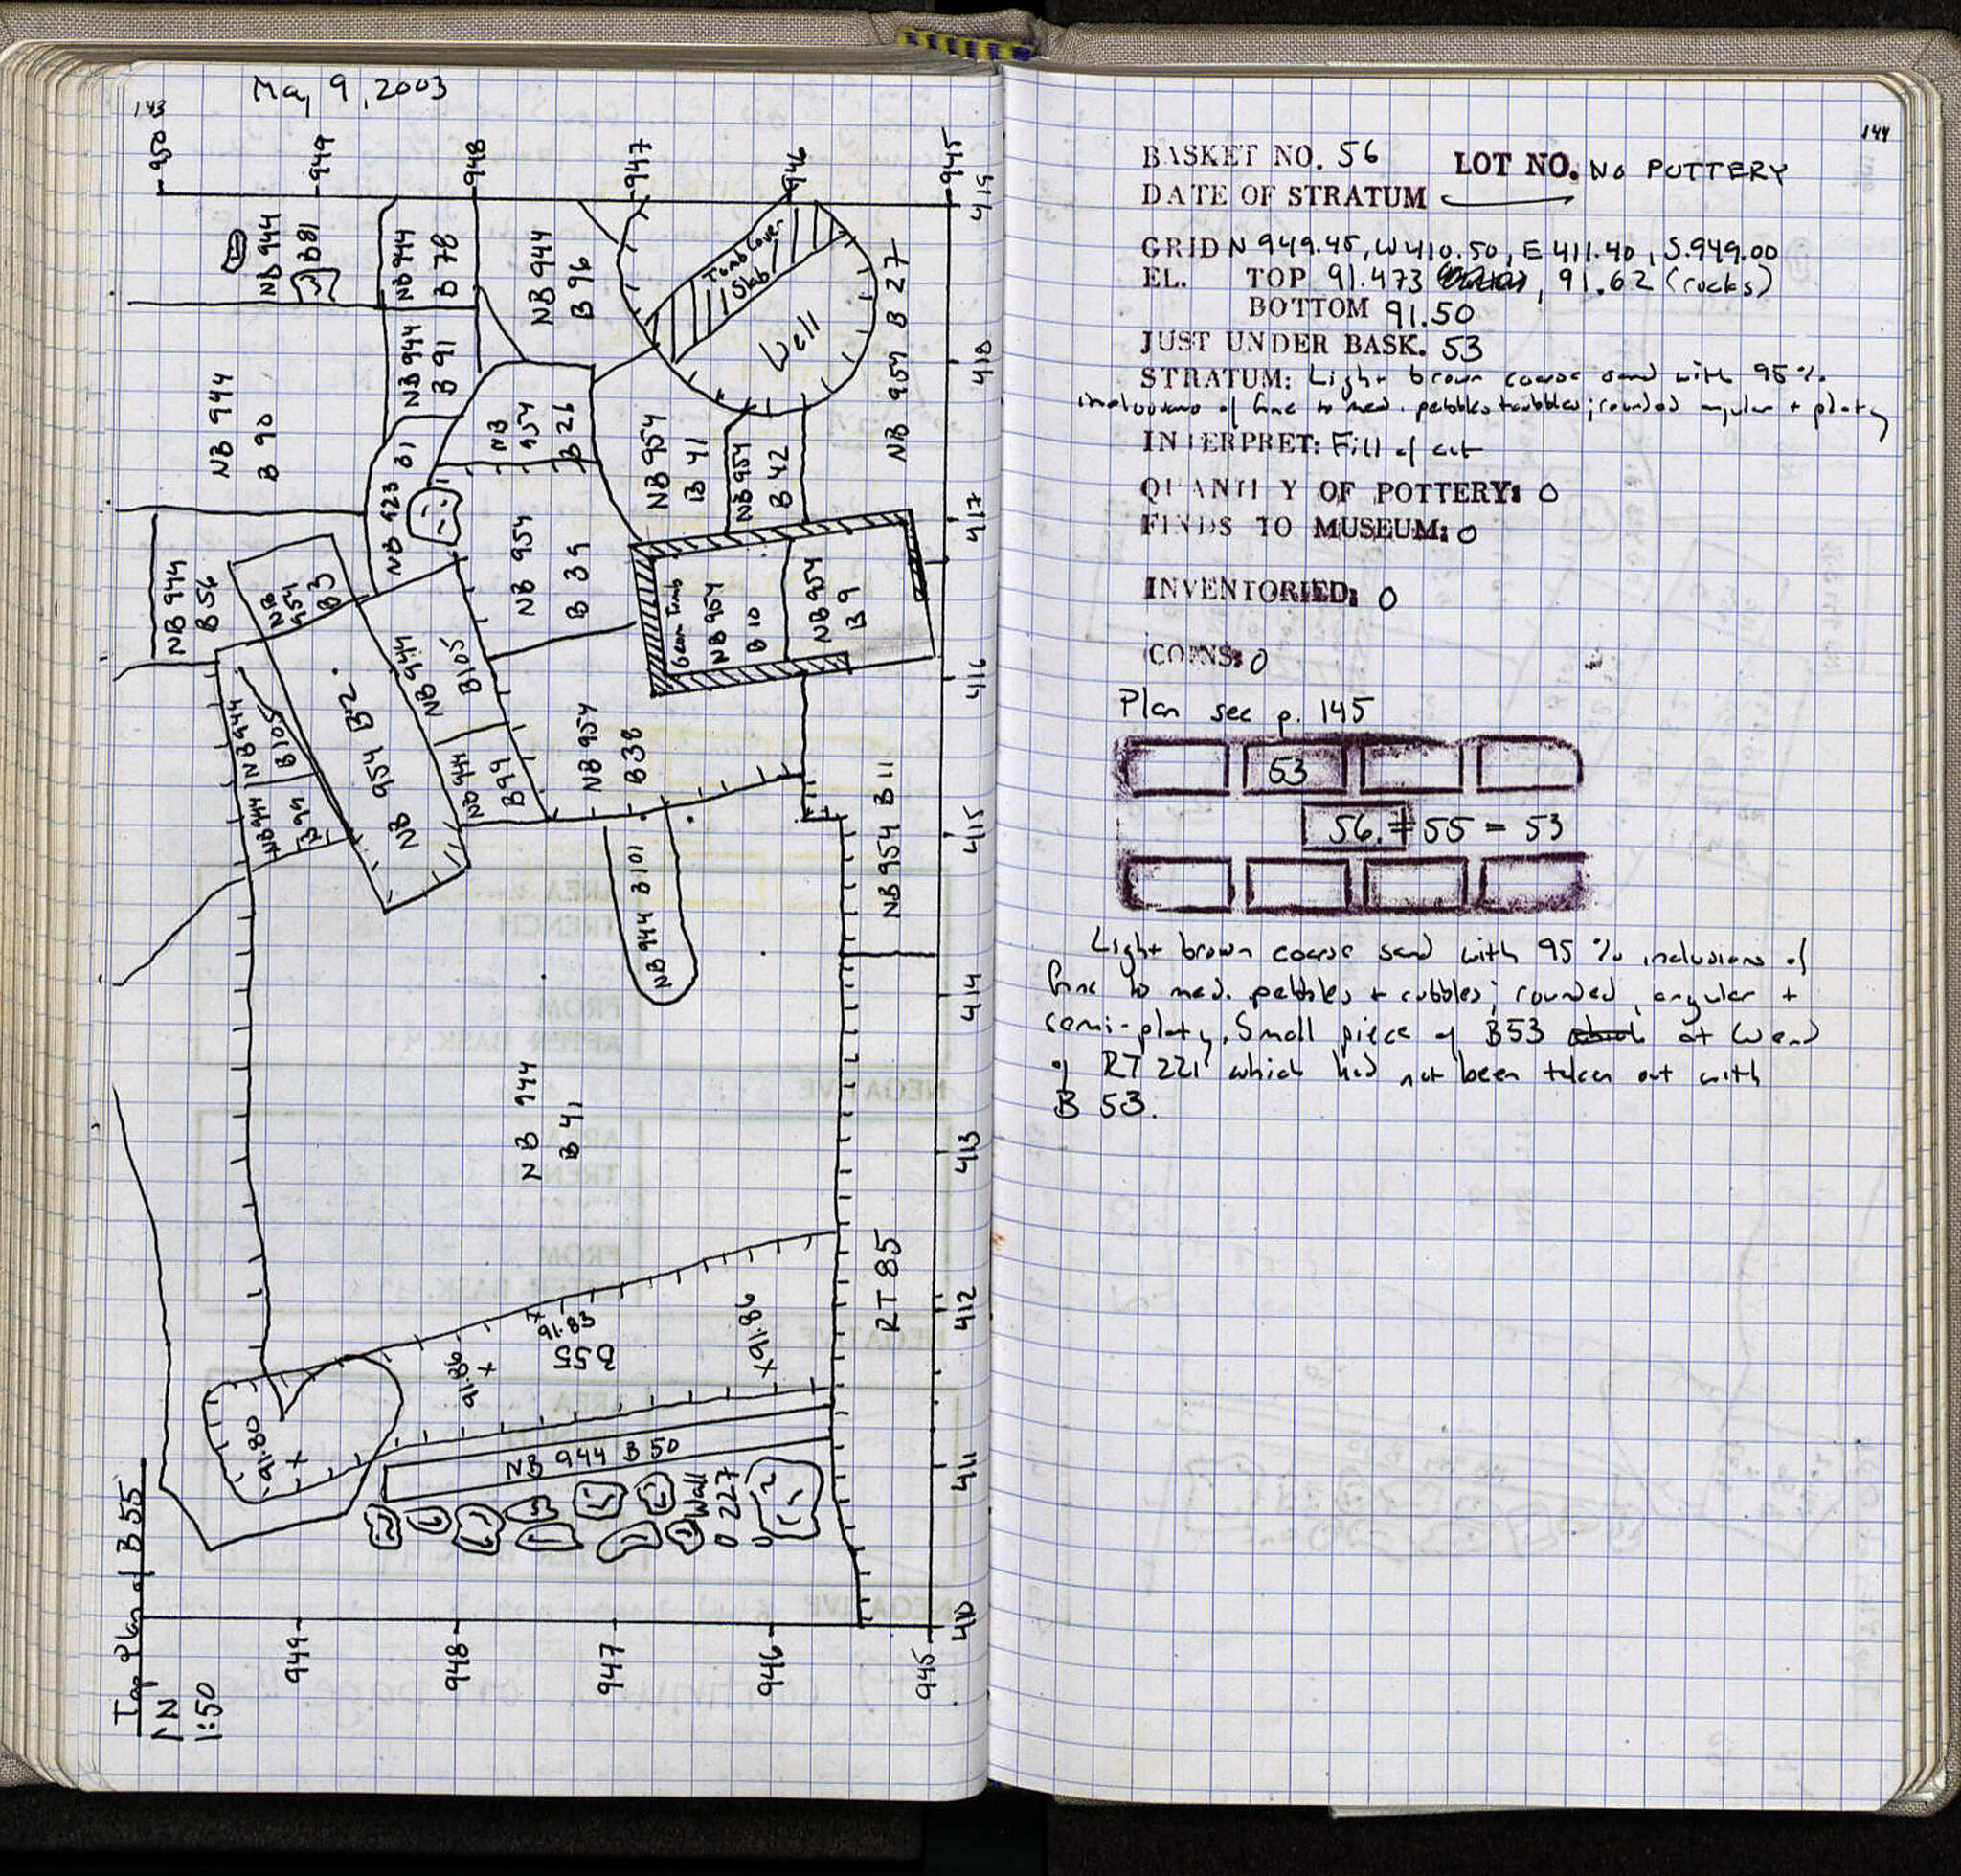 143
May 9, 2003
950
949
948
947
946
945
419
NB 944
B81
NB 944
B 78
NB 944
B 96
Tomb Cover
Slab
Well
NB 954 B 27
418
NB 944
B 90
NB 944
B 91
NB
954
B 26
NB 954
B 41
NB 954
B 42
417
NB 944
B 56
NB
954
B3
NB 923 B1
NB 954
B 39
Geom Tomb
NB 954
B 10
NB 954
B 9
416
NB 944
B105
NB 954 B2
NB 944
B105
NB 944
B 94
NB 944
B99
NB 954
B38
415
NB 954 B 11
NB 944 B101
414
NB 944
B 41
413
RT 85
412
91.83
B55
91.86
x
x 91.86
91.80
x
NB 944 B 50
Wall
0 227
411
410
949
948
947
946
945
Top Plan of B 55
N
1:50
144
BASKET NO. 56 LOT NO. No POTTERY
DATE OF STRATUM
GRID N 949.45, W 410.50, E 411.40, S. 949.00
EL. TOP 91.473 , 91.62 (rocks)
BOTTOM 91.50
JUST UNDER BASK. 53
STRATUM: Light brown coarse sand with 95%
inclusions of fine to med. pebbles + cobbles; rounded angular + platy
INTERPRET: Fill of cut
QUANTITY OF POTTERY: 0
FINDS TO MUSEUM: 0
INVENTORIED: 0
COINS: 0
Plan see p. 145
53
56. ≠ 55 = 53
Light brown coarse sand with 95 % inclusions of
fine to med. pebbles + cobbles; rounded, angular +
semi-platy. Small piece of B53 at W end
of RT 221 which had not been taken out with
B 53.